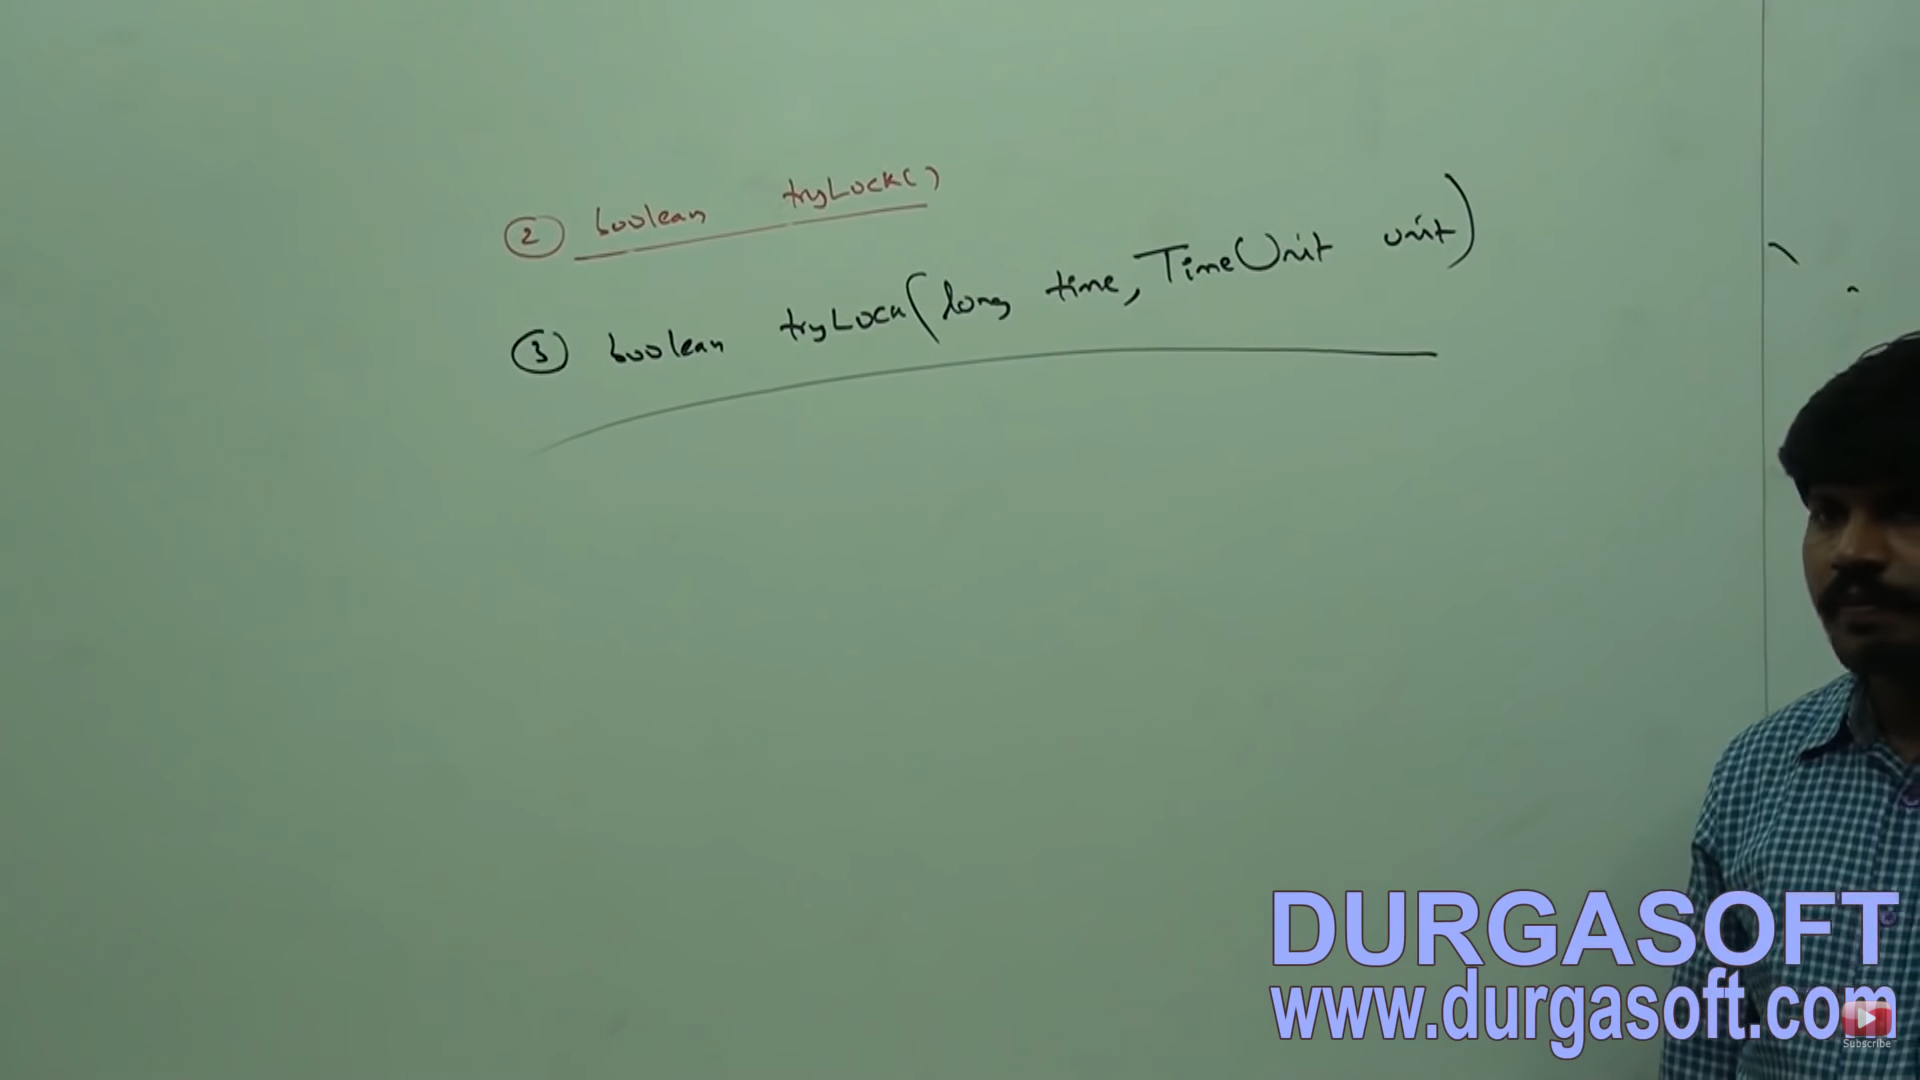 ② boolean tryLock()
③ boolean tryLock(long time, TimeUnit unit)
DURGASOFT
www.durgasoft.com
Subscribe